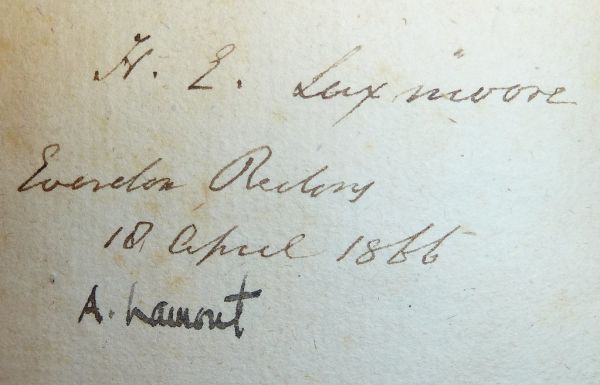 H. E. Luxmoore
Everdon Rectory
18 April 1866
A. Lamont